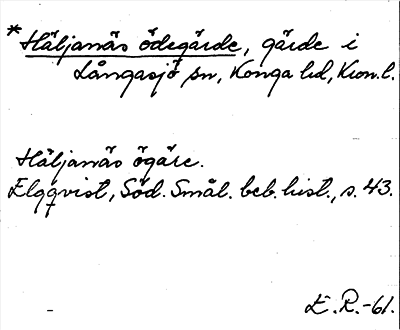 *Häljanäs ödegärde, gärde i
Långasjö sn, Konga hd, Kron.l.
Häljanäs ögäre.
Elgqvist, Söd. Smål. beb. hist., s. 43.
E. R.-61.